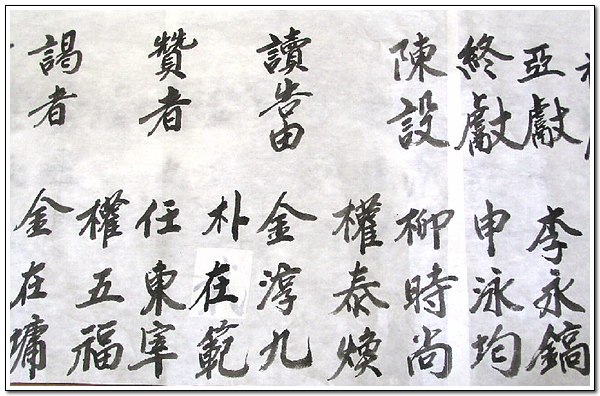 亞獻 李永鎬
終獻 申泳均
陳設 柳時尚
權泰煥
讀告由 金淳九
朴在範
贊者 任東宰
權五福
謁者 金在墉